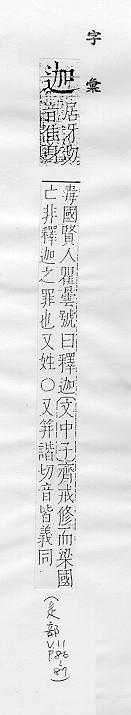 字彙
迦
毒國賢人瞿曇號曰釋迦(文中子)齊戒修而梁國
亡非釋迦之罪也又姓○又笄諧切音皆義同
(辵部
V.11
P.86-87)